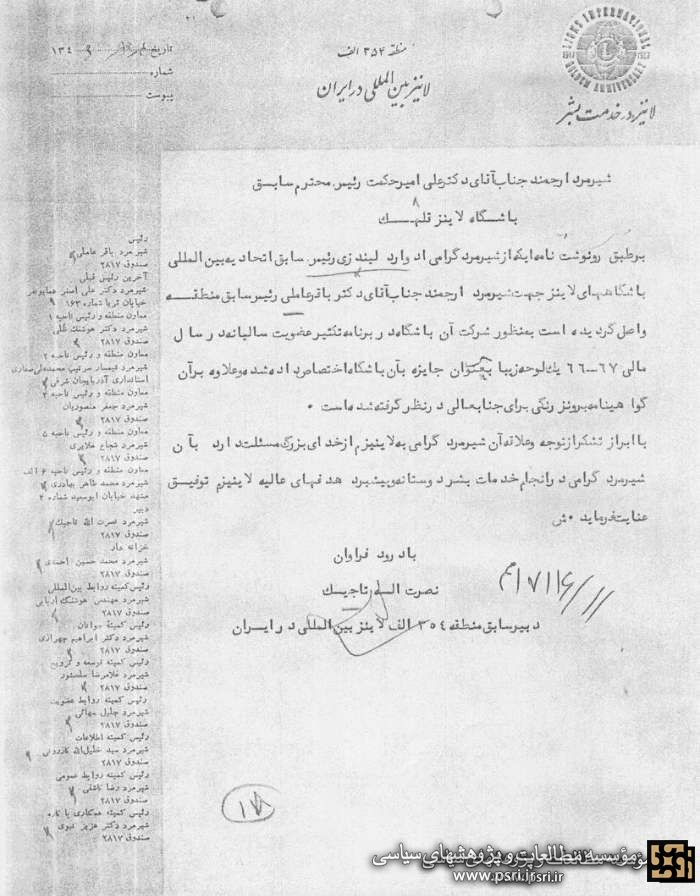 تاریخ ۱۳۴
شماره
پیوست
منطقه ۳۵۴ الف
لاینز بین‌المللی در ایران
LIONS INTERNATIONAL
GOLDEN ANNIVERSARY
1917 1967
لاینز در خدمت بشر
شیرمرد ارجمند جناب آقای دکتر علی امیرحکمت رئیس محترم سابق
باشگاه لاینز قلهک
برطبق رونوشت نامه ایکه از شیرمرد گرامی ادوارد لیندزی رئیس سابق اتحادیه بین المللی
باشگاههای لاینز جهت شیرمرد ارجمند جناب آقای دکتر باقر عاملی رئیس سابق منطقه
واصل گردیده است به منظور شرکت آن باشگاه در برنامه تکثیر عضویت سالیانه در سال
مالی ۶۷-۶۶ یک لوحه زیبا بعنوان جایزه بآن باشگاه اختصاص داده شده و علاوه بر آن
گواهینامه برونز رنگی برای جنابعالی در نظر گرفته شده است .
با ابراز تشکر از توجه و علاقه آن شیرمرد گرامی به لاینیزم از خدای بزرگ مسئلت دارد بآن
شیرمرد گرامی در انجام خدمات بشر دوستانه و پیشبرد هدفهای عالیه لاینیزم توفیق
عنایت فرماید .
با درود فراوان
نصرت اله تاجیک
دبیر سابق منطقه ۳۵۴ الف لاینز بین المللی در ایران
رئیس
شیر مرد باقر عاملی
صندوق ۲۸۱۷
آخرین رئیس قبلی
شیرمرد دکتر علی اصغر
خیابان ثریا شماره ۱۶۳
معاون منطقه و رئیس ناحیه ۱
شیرمرد دکتر هوشنگ
صندوق ۲۸۱۷
معاون منطقه و رئیس ناحیه ۲
شیرمرد تیمسار سرتیپ محمدعلی صفاری
استانداری آذربایجان شرقی
معاون منطقه و رئیس ناحیه ۳
شیرمرد جعفر منصوریان
صندوق ۲۸۱۷
معاون منطقه و رئیس ناحیه ۵
شیرمرد شجاع ملایری
صندوق ۲۸۱۷
معاون منطقه و رئیس ناحیه ۶ الف
شیرمرد محمد طاهر بهادری
مشهد خیابان ابوسعید شماره ۲
دبیر
شیرمرد نصرت الله تاجیک
صندوق ۲۸۱۷
خزانه دار
شیرمرد محمد حسین احمدی
صندوق ۲۸۱۷
رئیس کمیته روابط بین‌المللی
شیرمرد مهندس هوشنگ
صندوق ۲۸۱۷
رئیس کمیته جوانان
شیرمرد دکتر ابراهیم چهرازی
صندوق ۲۸۱۷
رئیس کمیته توسعه و ترویج
شیرمرد غلامرضا
صندوق ۲۸۱۷
رئیس کمیته روابط عضویت
شیرمرد جلیل
صندوق ۲۸۱۷
رئیس کمیته اطلاعات
شیرمرد سید خلیل‌الله کازرونی
صندوق ۲۸۱۷
رئیس کمیته روابط عمومی
شیرمرد رضا
صندوق ۲۸۱۷
رئیس کمیته همکاری با
شیرمرد دکتر عزیز نبوی
صندوق ۲۸۱۷
مؤسسه مطالعات و پژوهشهای سیاسی
www.psri.ir